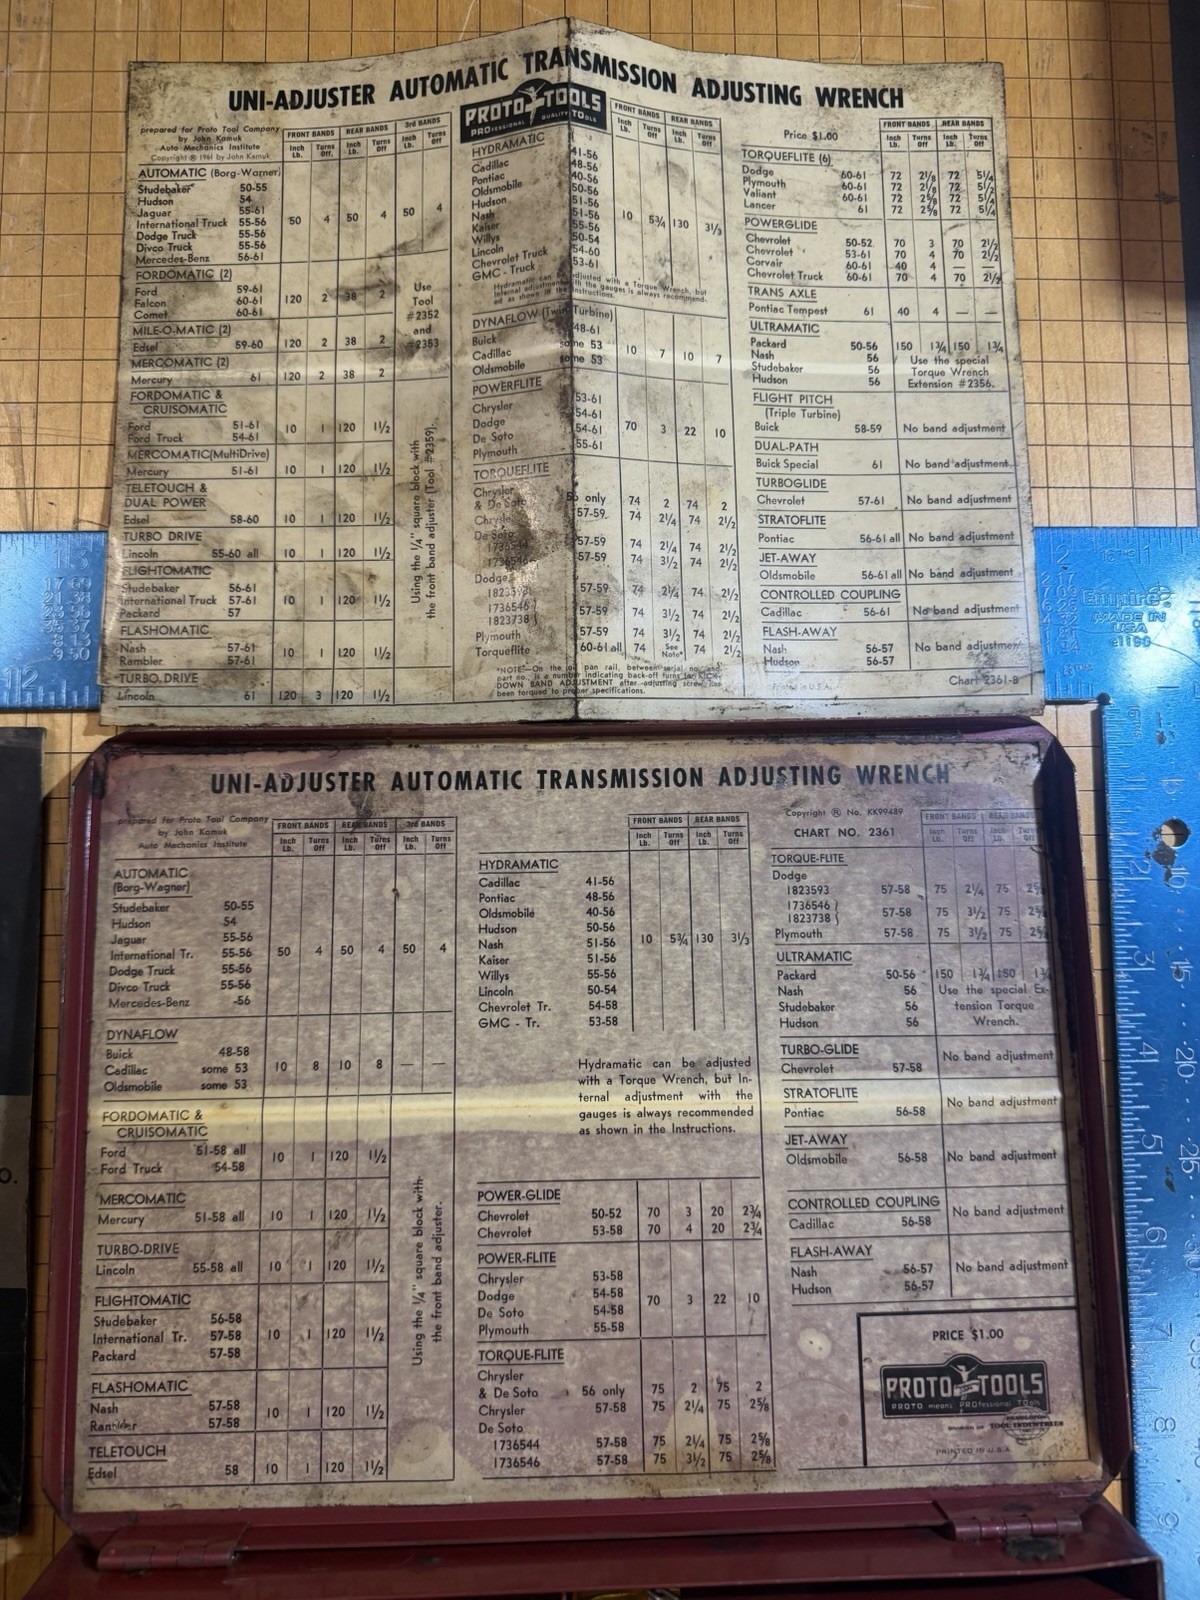 UNI-ADJUSTER AUTOMATIC TRANSMISSION ADJUSTING WRENCH
prepared for Proto Tool Company
by John Kamuk
Auto Mechanics Institute
Copyright ® 1961 by John Kamuk
FRONT BANDS REAR BANDS 3rd BANDS
Inch Lb. Turns Off Inch Lb. Turns Off Inch Lb. Turns Off
AUTOMATIC (Borg-Warner)
Studebaker 50-55
Hudson 54
Jaguar 55-61
International Truck 55-56 50 4 50 4 50 4
Dodge Truck 55-56
Divco Truck 55-56
Mercedes-Benz 56-61
FORDOMATIC (2)
Ford 59-61
Falcon 60-61 120 2 38 2
Comet 60-61
Use
Tool
#2352
and
#2353
MILE-O-MATIC (2)
Edsel 59-60 120 2 38 2
MERCOMATIC (2)
Mercury 61 120 2 38 2
FORDOMATIC &
CRUISOMATIC
Ford 51-61 10 1 120 1½
Ford Truck 54-61
MERCOMATIC(MultiDrive)
Mercury 51-61 10 1 120 1½
TELETOUCH &
DUAL POWER
Edsel 58-60 10 1 120 1½
TURBO DRIVE
Lincoln 55-60 all 10 1 120 1½
FLIGHTOMATIC
Studebaker 56-61
International Truck 57-61 10 1 120 1½
Packard 57
FLASHOMATIC
Nash 57-61 10 1 120 1½
Rambler 57-61
TURBO DRIVE
Lincoln 61 120 3 120 1½
Using the ¼" square block with
the front band adjuster (Tool #2359).
PROTO TOOLS
PROfessional QUALITY TOols
FRONT BANDS REAR BANDS
Inch Lb. Turns Off Inch Lb. Turns Off
HYDRAMATIC
Cadillac 41-56
Pontiac 48-56
Oldsmobile 40-56
Hudson 50-56
Nash 51-56
Kaiser 51-56 10 5¾ 130 3⅓
Willys 55-56
Lincoln 50-54
Chevrolet Truck 54-60
GMC - Truck 53-61
Hydramatic can be adjusted with a Torque Wrench, but
internal adjustment with the gauges is always recommend-
ed as shown in the Instructions.
DYNAFLOW (Twin Turbine)
Buick 48-61
Cadillac some 53 10 7 10 7
Oldsmobile some 53
POWERFLITE
Chrysler 53-61
Dodge 54-61 70 3 22 10
De Soto 54-61
Plymouth 55-61
TORQUEFLITE
Chrysler
& De Soto 56 only 74 2 74 2
Chrysler 57-59 74 2¼ 74 2½
De Soto
1736544 57-59 74 2¼ 74 2½
1736546 57-59 74 3½ 74 2½
Dodge
1823593 57-59 74 2¼ 74 2½
1736546
1823738 57-59 74 3½ 74 2½
Plymouth 57-59 74 3½ 74 2½
Torqueflite 60-61 all 74 See Note* 74 2½
*NOTE—On the oil pan rail, between serial no. and
part no., is a number indicating back-off turns for KICK-
DOWN BAND ADJUSTMENT after adjusting screw has
been torqued to proper specifications.
Price $1.00
FRONT BANDS REAR BANDS
Inch Lb. Turns Off Inch Lb. Turns Off
TORQUEFLITE (6)
Dodge 60-61 72 2⅛ 72 5¼
Plymouth 60-61 72 2⅛ 72 5½
Valiant 60-61 72 2⅝ 72 5½
Lancer 61 72 2⅝ 72 5¼
POWERGLIDE
Chevrolet 50-52 70 3 70 2½
Chevrolet 53-61 70 4 70 2½
Corvair 60-61 40 4 — —
Chevrolet Truck 60-61 70 4 70 2½
TRANS AXLE
Pontiac Tempest 61 40 4 — —
ULTRAMATIC
Packard 50-56 150 1¾ 150 1¾
Nash 56 Use the special
Studebaker 56 Torque Wrench
Hudson 56 Extension #2356.
FLIGHT PITCH
(Triple Turbine)
Buick 58-59 No band adjustment
DUAL-PATH
Buick Special 61 No band adjustment
TURBOGLIDE
Chevrolet 57-61 No band adjustment
STRATOFLITE
Pontiac 56-61 all No band adjustment
JET-AWAY
Oldsmobile 56-61 all No band adjustment
CONTROLLED COUPLING
Cadillac 56-61 No band adjustment
FLASH-AWAY
Nash 56-57 No band adjustment
Hudson 56-57
Printed in U.S.A. Chart 2361-B
Empire
MADE IN
USA
UNI-ADJUSTER AUTOMATIC TRANSMISSION ADJUSTING WRENCH
prepared for Proto Tool Company
by John Kamuk
Auto Mechanics Institute
FRONT BANDS REAR BANDS 3rd BANDS
Inch Lb. Turns Off Inch Lb. Turns Off Inch Lb. Turns Off
AUTOMATIC
(Borg-Wagner)
Studebaker 50-55
Hudson 54
Jaguar 55-56
International Tr. 55-56 50 4 50 4 50 4
Dodge Truck 55-56
Divco Truck 55-56
Mercedes-Benz -56
DYNAFLOW
Buick 48-58
Cadillac some 53 10 8 10 8 — —
Oldsmobile some 53
FORDOMATIC &
CRUISOMATIC
Ford 51-58 all 10 1 120 1½
Ford Truck 54-58
MERCOMATIC
Mercury 51-58 all 10 1 120 1½
TURBO-DRIVE
Lincoln 55-58 all 10 1 120 1½
FLIGHTOMATIC
Studebaker 56-58
International Tr. 57-58 10 1 120 1½
Packard 57-58
FLASHOMATIC
Nash 57-58 10 1 120 1½
Rambler 57-58
TELETOUCH
Edsel 58 10 1 120 1½
Using the ¼" square block with
the front band adjuster.
FRONT BANDS REAR BANDS
Inch Lb. Turns Off Inch Lb. Turns Off
HYDRAMATIC
Cadillac 41-56
Pontiac 48-56
Oldsmobile 40-56
Hudson 50-56
Nash 51-56 10 5¾ 130 3⅓
Kaiser 51-56
Willys 55-56
Lincoln 50-54
Chevrolet Tr. 54-58
GMC - Tr. 53-58
Hydramatic can be adjusted
with a Torque Wrench, but In-
ternal adjustment with the
gauges is always recommended
as shown in the Instructions.
POWER-GLIDE
Chevrolet 50-52 70 3 20 2¾
Chevrolet 53-58 70 4 20 2¾
POWER-FLITE
Chrysler 53-58
Dodge 54-58 70 3 22 10
De Soto 54-58
Plymouth 55-58
TORQUE-FLITE
Chrysler
& De Soto 56 only 75 2 75 2
Chrysler 57-58 75 2¼ 75 2⅝
De Soto
1736544 57-58 75 2¼ 75 2⅝
1736546 57-58 75 3½ 75 2⅝
Copyright ® No. KK99489
CHART NO. 2361
FRONT BANDS REAR BANDS
Inch Lb. Turns Off Inch Lb. Turns Off
TORQUE-FLITE
Dodge
1823593 57-58 75 2¼ 75 2⅝
1736546
1823738 57-58 75 3½ 75 2⅝
Plymouth 57-58 75 3½ 75 2⅝
ULTRAMATIC
Packard 50-56 150 1¾ 150 1¾
Nash 56 Use the special Ex-
Studebaker 56 tension Torque
Hudson 56 Wrench.
TURBO-GLIDE
Chevrolet 57-58 No band adjustment
STRATOFLITE
Pontiac 56-58 No band adjustment
JET-AWAY
Oldsmobile 56-58 No band adjustment
CONTROLLED COUPLING
Cadillac 56-58 No band adjustment
FLASH-AWAY
Nash 56-57 No band adjustment
Hudson 56-57
PRICE $1.00
PROTO TOOLS
PROTO means PROfessional TOols
PRINTED IN U.S.A.